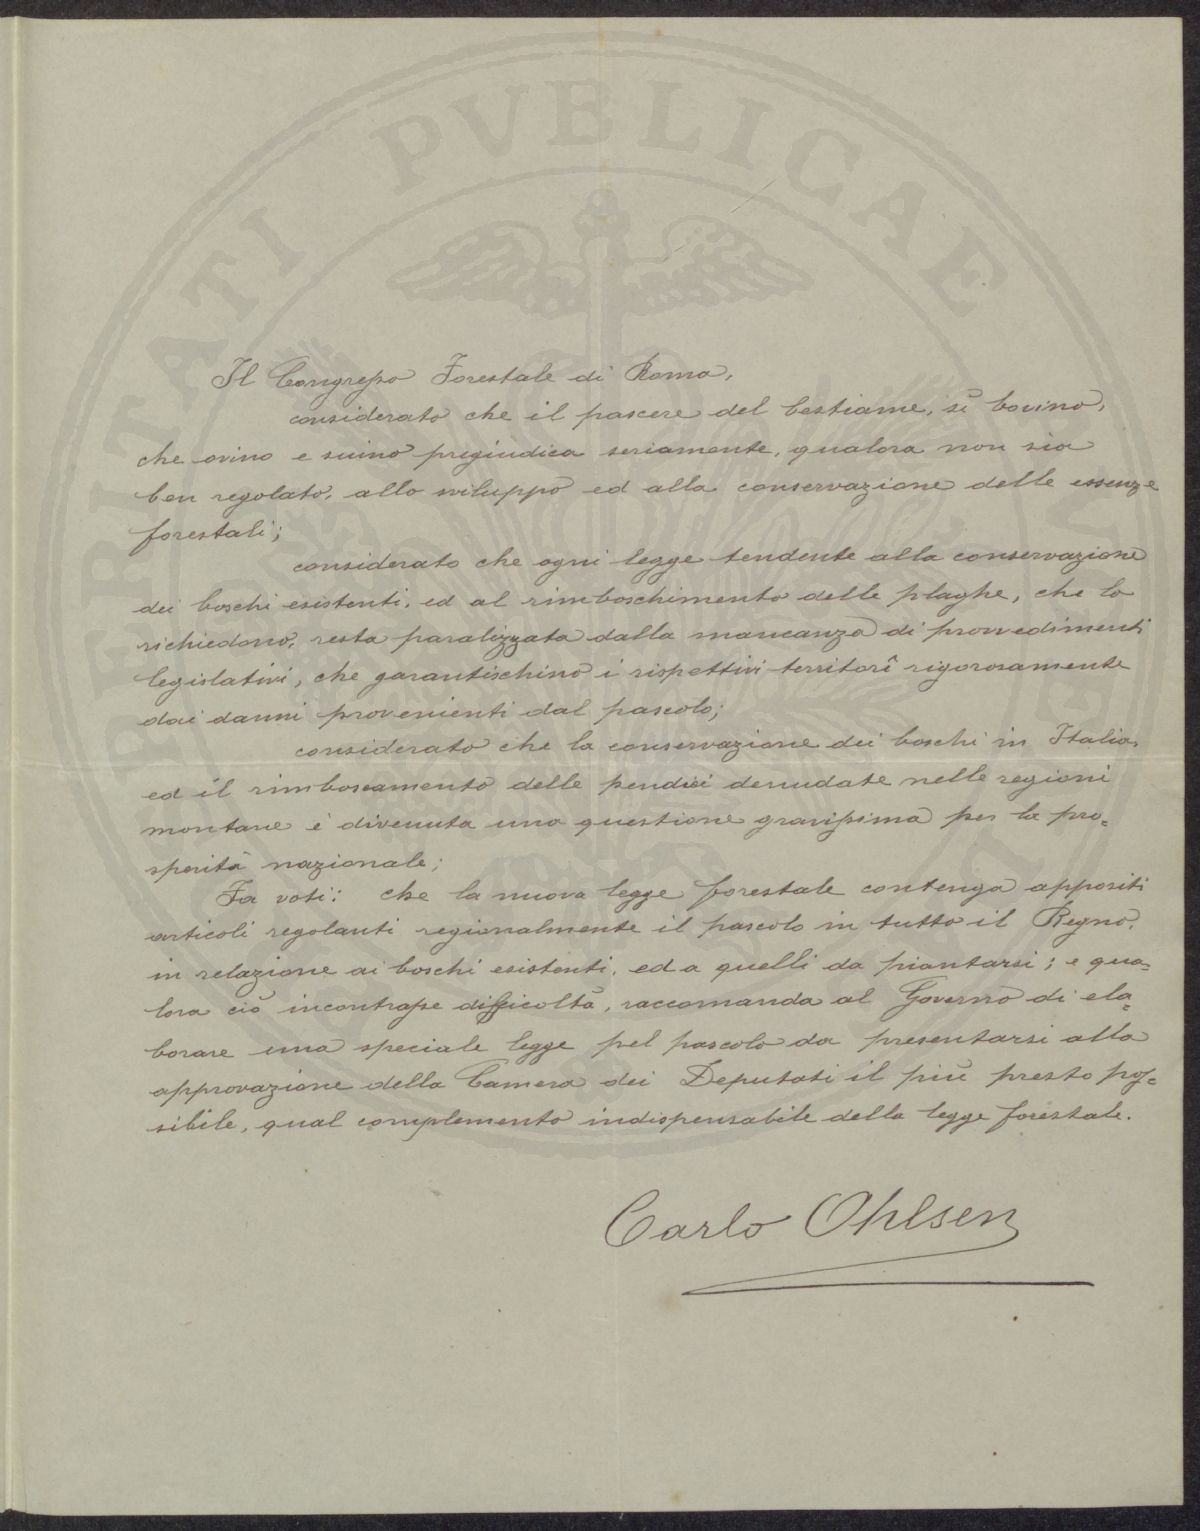 PROSPERITATI PVBLICAE
Il Congresso Forestale di Roma,
considerato che il pascere del bestiame, sì bovino,
che ovino e suino pregiudica seriamente, qualora non sia
ben regolato, allo sviluppo ed alla conservazione delle essenze
forestali;
considerato che ogni legge tendente alla conservazione
dei boschi esistenti, ed al rimboschimento delle plaghe, che lo
richiedono, resta paralizzata dalla mancanza di provvedimenti
legislativi, che garantischino i rispettivi territorî rigorosamente
dai danni provenienti dal pascolo;
considerato che la conservazione dei boschi in Italia,
ed il rimboscamento delle pendici denudate nelle regioni
montane è divenuta una questione gravissima per la pro=
sperità nazionale;
Fa voti: che la nuova legge forestale contenga appositi
articoli regolanti regionalmente il pascolo in tutto il Regno,
in relazione ai boschi esistenti, ed a quelli da piantarsi; e qua=
lora ciò incontrasse difficoltà, raccomanda al Governo di ela=
borare una speciale legge pel pascolo da presentarsi alla
approvazione della Camera dei Deputati il più presto pos=
sibile, qual complemento indispensabile della legge forestale.
Carlo Ohlsen